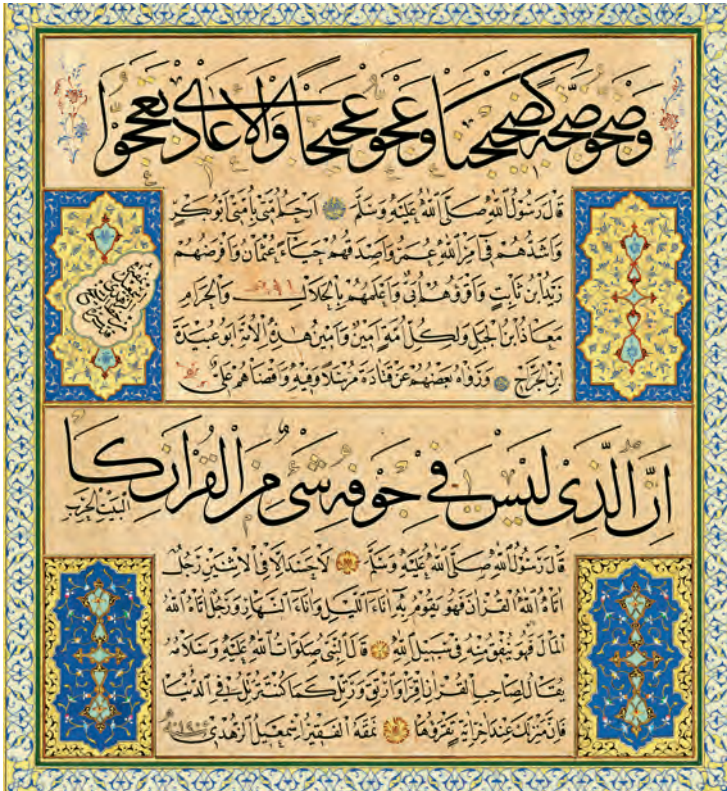 وضجو ضجة وعجو عجيجا والاعادى
قال رسول الله صلى الله عليه وسلم ارحم امتى بامتى ابو بكر
واشدهم فى امر الله عمر واصدقهم حياء عثمان وافرضهم
زيد ابن ثابت واقروهم ابى واعلمهم بالحلال والحرام
معاذ ابن الجبل ولكل امة امين وامين هذه الامة ابو عبيدة
ابن الجراح وروٰاه بعضهم عن قتادة مرسلا وفيه واقضاهم على
ان الذى ليس فى جوفه شئ من القران كا
البيت الخرب
قال رسول الله صلى الله عليه وسلم لا حسد الا فى الاثنين رجل
اتاه الله القران فهو يقوم به اناء الليل واناء النهار ورجل اتاه الله
المال فهو ينفق منه فى سبيل الله قال النبى صلوات الله عليه وسلامه
يقال لصاحب القران اقرا وارتق ورتل كما كنت ترتل فى الدنيا
فان منزلك عند اخر اية تقروها نمقه الفقير اسمعيل الزهدى